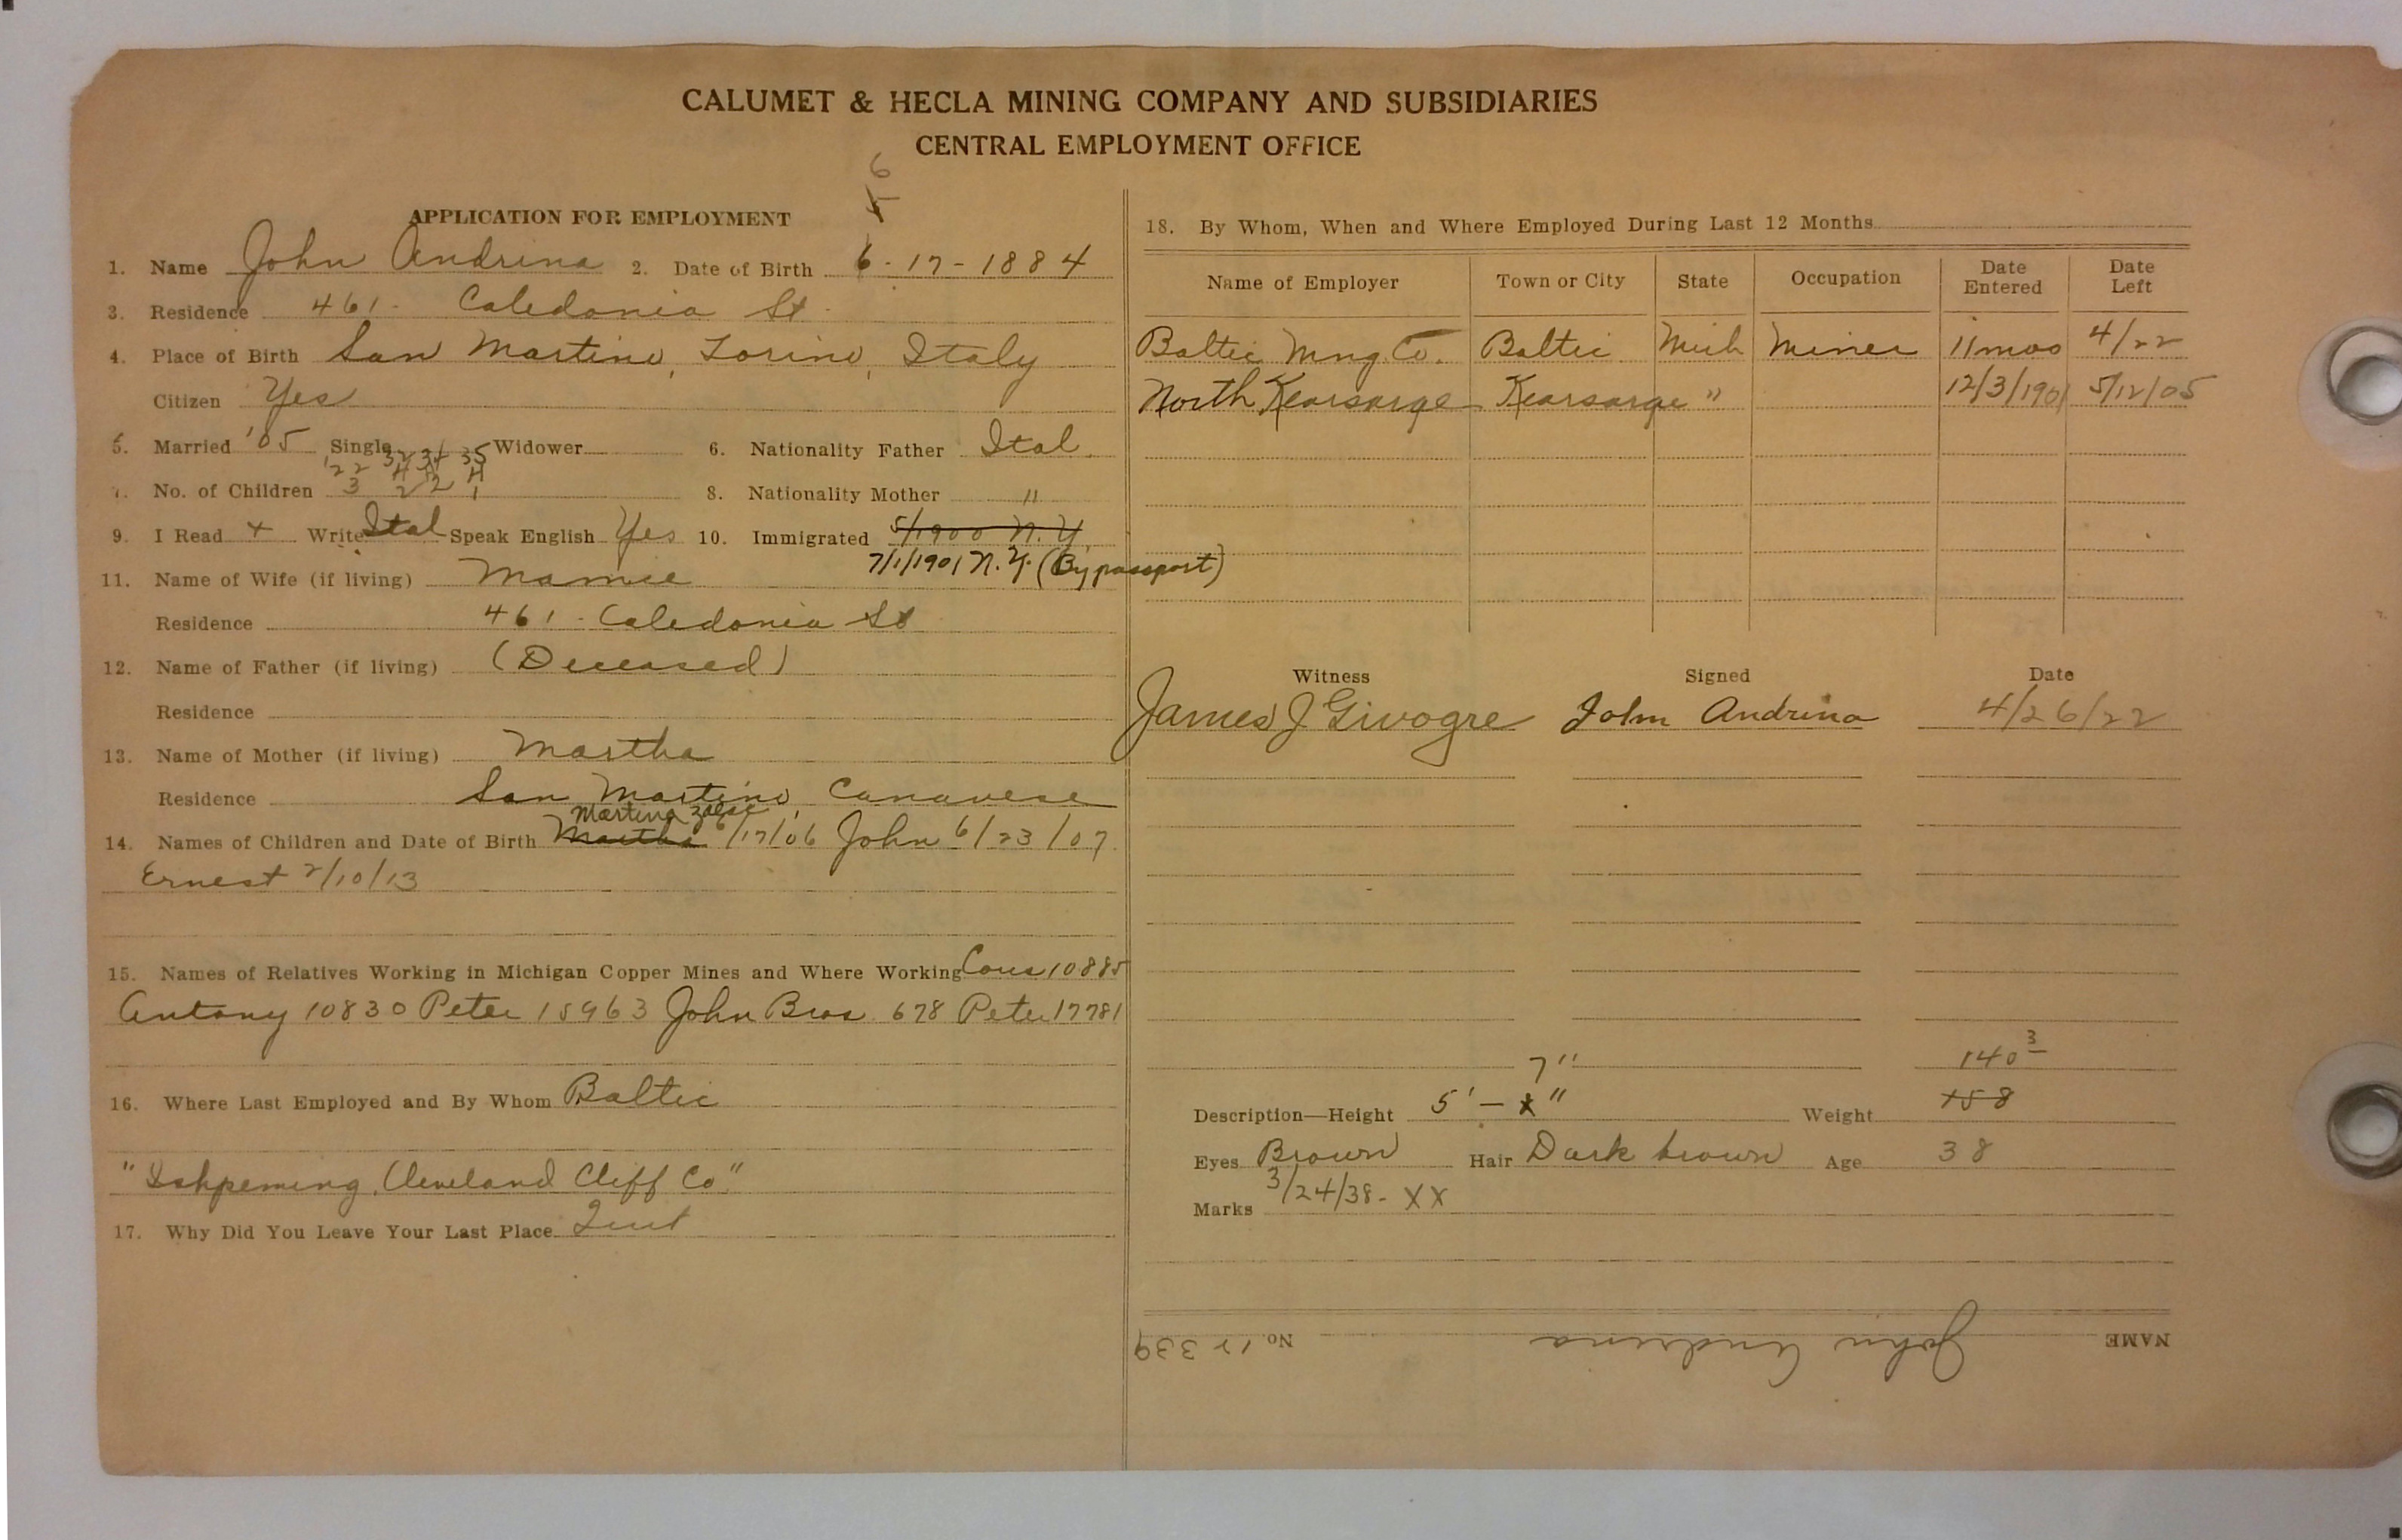 CALUMET & HECLA MINING COMPANY AND SUBSIDIARIES
CENTRAL EMPLOYMENT OFFICE
6
APPLICATION FOR EMPLOYMENT
1. Name John Andrina 2. Date of Birth 6-17-1884
3. Residence 461- Caledonia St.
4. Place of Birth San Martino, Torino, Italy
Citizen Yes
5. Married '05 Single Widower 6. Nationality Father Ital.
'22 32 34 35
7. No. of Children 3 2 2 1 8. Nationality Mother "
9. I Read + Write Ital Speak English Yes 10. Immigrated 5/1900 N.Y.
7/1/1901 N.Y. (By passport)
11. Name of Wife (if living) Mamie
Residence 461- Caledonia St
12. Name of Father (if living) (Deceased)
Residence
13. Name of Mother (if living) Martha
Residence San Martino, Canavese
Martina
14. Names of Children and Date of Birth Martha 6/17/06 John 6/23/07
Ernest 2/10/13
15. Names of Relatives Working in Michigan Copper Mines and Where Working Cous 10885
Antony 10830 Peter 15963 John Bros. 678 Peter 17781
16. Where Last Employed and By Whom Baltic
"Ishpeming, Cleveland Cliff Co"
17. Why Did You Leave Your Last Place Quit
18. By Whom, When and Where Employed During Last 12 Months
Name of Employer Town or City State Occupation Date Entered Date Left
Baltic Mng. Co. Baltic Mich Miner 11 mos 4/22
North Kearsarge Kearsarge " 12/3/1901 5/12/05
Witness Signed Date
James J Givogre John Andrina 4/26/22
7" 140 3
Description—Height 5'- " Weight 158
Eyes Brown Hair Dark brown Age 38
Marks 3/24/38- XX
NAME John Andrina No. 12339